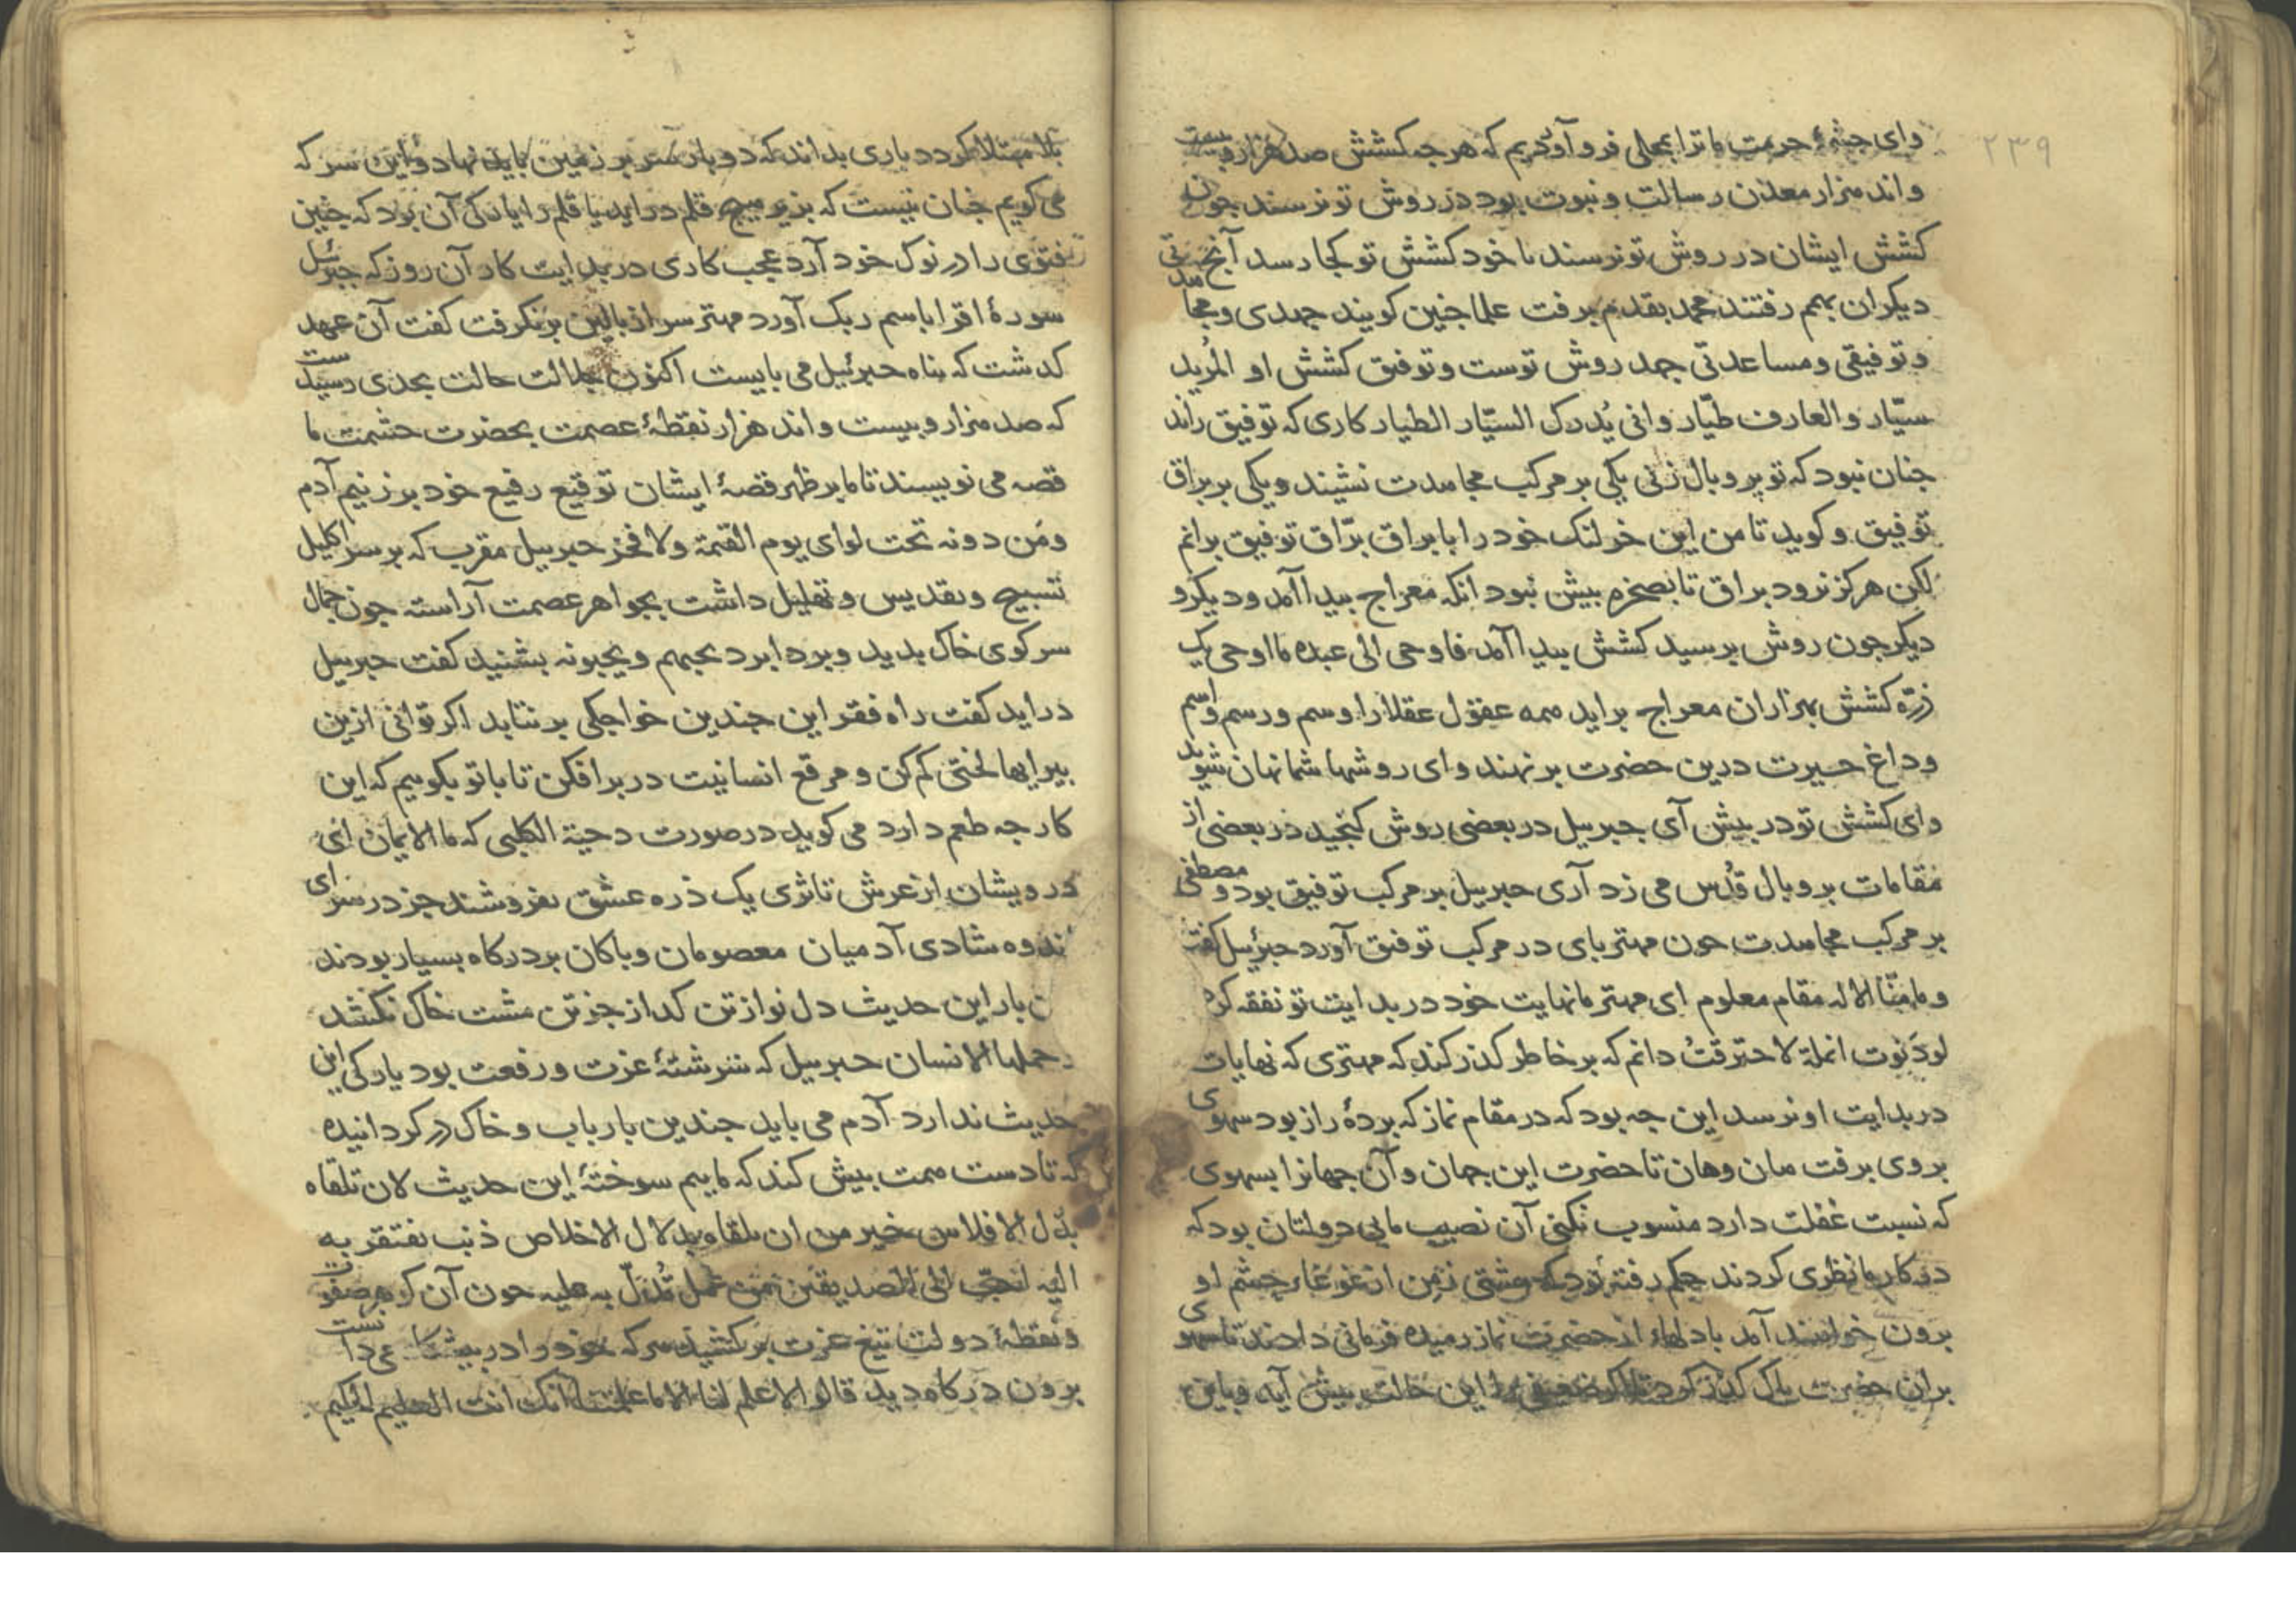 ۲۳۹
وای چشمهٔ حرمت ما ترا بمحلی فرو آوردیم که هر جه کشش صد هزار و بیست
و اند هزار معدن رسالت و نبوت بود در روش تو نرسند جون
کشش ایشان در روش تو نرسند تا خود کشش تو کجا رسد آنچ
دیکران بهم رفتند محمد بقدم برفت علما جنین کویند جهدی و
و توفیقی و مساعدتی جهد روش توست و توفیق کشش او المُرید
سیّار و العارف طیّار وانی یُدرک السیّار الطیار کاری که توفیق راند
جنان نبود که تو پر و بال زنی یکی بر مرکب مجاهدت نشیند و یکی بر براق
توفیق و کوید تا من این خر لنک خود را با براق برّاق توفیق برانم
لکن هرکز نرود براق تا بصخره بیش نبود انکه معراج بیدا آمد و دیکر و
دیکر جون روش برسید کشش بیدا آمد فاوحی الی عبده ما اوحی یک
ذرّه کشش بهزاران معراج براید همه عقول عقلا را وسم و رسم و اسم
و داغ حیرت درین حضرت بر نهند وای روشها شما نهان شوید
وای کشش تو در بیش آی جبرییل در بعضی روش کنجید در بعضی از
مقامات بر و بال قُدس می زد آری جبرییل بر مرکب توفیق بود و مصطفی
بر مرکب مجاهدت جون مهتر بای در مرکب توفیق آورد جبرئیل کفت
و ما منّا الا له مقام معلوم ای مهتر ما نهایت خود در بدایت تو نفقه کرد
لو دَنوت انملة لاحترقتُ دانم که بر خاطر کذر کند که مهتری که نهایات
در بدایت او نرسد این جه بود که در مقام نماز که بردهٔ راز بود سهوی
بروی برفت هان و هان تا حضرت این جهان و آن جهانرا بسهوی
که نسبت غفلت دارد منسوب نکنی آن نصیب ما بی دولتان بود که
در کار ما نظری کردند حکم رفته بود که مشتی زمن از غوغاء جشم او
برون خواهند آمد بادلهاء از حضرت نماز رمیده فرمانی دادند تا سهوی
بران حضرت باک کذر کرد تا اکر ضعیفی را این حالت بیش آید و باین
بلا مبتلا کردد باری بداند که دو بار سر بر زمین باید نهاد و این سر که
می کویم جنان نیست که بزیر هیچ قلم دراید یا قلم را یاری آن بود که جنین
فتوی را در نوک خود آرد عجب کاری در بدایت کار آن روز که جبرئیل
سورهٔ اقرا باسم ربک آورد مهتر سر از بالین بر نکرفت کفت آن عهد
کذشت که بناه جبرئیل می بایست اکنون جلالت حالت بجدی رسیدست
که صد هزار و بیست و اند هزار نقطهٔ عصمت بحضرت حشمت ما
قصه می نویسند تا ما بر ظهر قصهٔ ایشان توقیع رفیع خود بر زنیم آدم
و مَن دونه تحت لوای یوم القیمة ولا فخر جبرییل مقرب که بر سر اکلیل
تسبیح و تقدیس و تهلیل داشت بجواهر عصمت آراسته جون جمال
سر کوی خاک بدید و برد ابرد یحبهم و یحبونه بشنید کفت جبرییل
دراید کفت راه فقر این جندین خواجکی بر نتابد اکر توانی ازین
بیرایها لختی کم کن و مرقع انسانیت در بر افکن تا با تو بکوییم که این
کار جه طعم دارد می کوید در صورت دحیة الکلبی که ما الایمان
درویشان از عرش تا ثری یک ذره عشق نفروشند جز در سرای
اندوه شادی آدمیان معصومان و باکان بر درکاه بسیار بودند
بار این حدیث دل نواز تن کداز جز تن مشت خاک نکشد
و حملها الانسان جبرییل که سرشتهٔ عزت و رفعت بود یار کی این
حدیث ندارد آدم می باید جندین بار باب و خاک در کردانیده
که تا دست همت بیش کند که ماییم سوختهٔ این حدیث لان تلقاه
بذل الافلاس خیر من ان تلقاه بدلال الاخلاص ذنب تفتقر به
الیه احبّ الی الصدیقین من عمل تُدلّ به علیه جون آن کوهر صفوت
و نقطهٔ دولت تیغ عزت بر کشید هر که خود را در
برون درکاه دید قالوا لا علم لنا الا ما علمتنا انک انت العلیم الحکیم